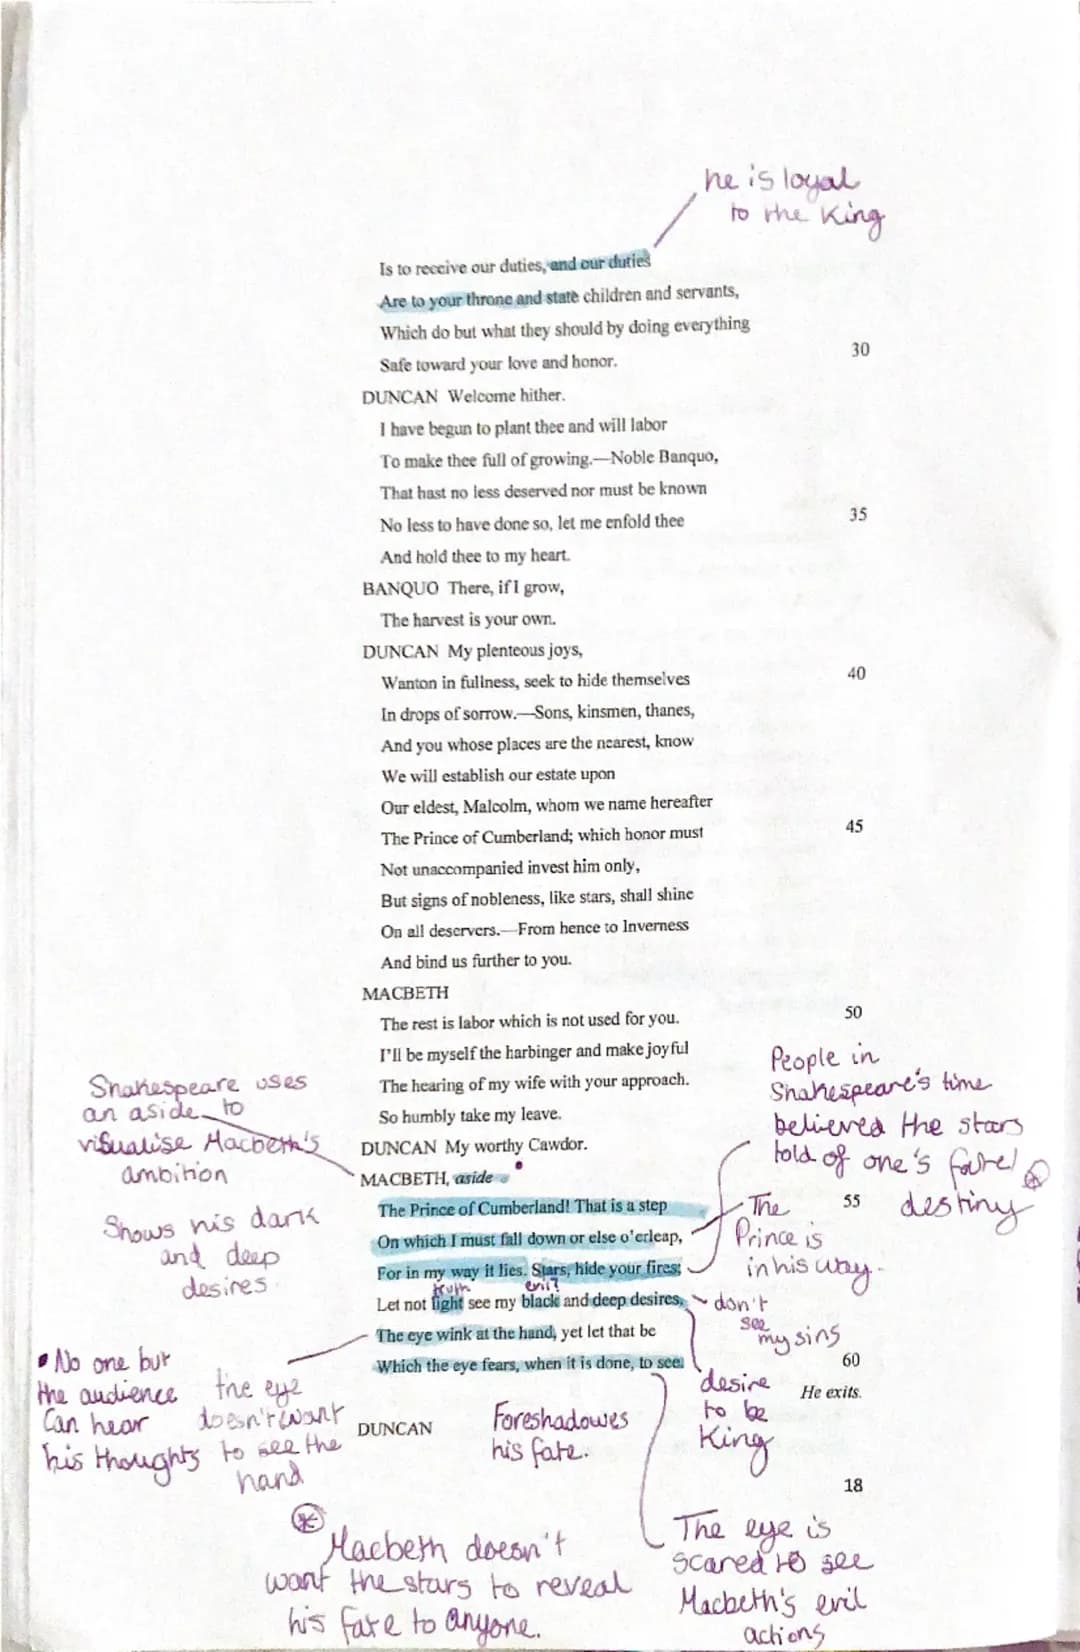 he is loyal
to the King
Is to receive our duties, and our duties
Are to your throne and state children and servants,
Which do but what they should by doing everything
30
Safe toward your love and honor.
DUNCAN Welcome hither.
I have begun to plant thee and will labor
To make thee full of growing.—Noble Banquo,
That hast no less deserved nor must be known
35
No less to have done so, let me enfold thee
And hold thee to my heart.
BANQUO There, if I grow,
The harvest is your own.
DUNCAN My plenteous joys,
Wanton in fullness, seek to hide themselves
40
In drops of sorrow.—Sons, kinsmen, thanes,
And you whose places are the nearest, know
We will establish our estate upon
Our eldest, Malcolm, whom we name hereafter
The Prince of Cumberland; which honor must
45
Not unaccompanied invest him only,
But signs of nobleness, like stars, shall shine
On all deservers.—From hence to Inverness
And bind us further to you.
MACBETH
The rest is labor which is not used for you.
50
I'll be myself the harbinger and make joyful
The hearing of my wife with your approach.
So humbly take my leave.
DUNCAN My worthy Cawdor.
MACBETH, aside
The Prince of Cumberland! That is a step
55
On which I must fall down or else o'erleap,
For in my way it lies. Stars, hide your fires;
truth evil?
Let not light see my black and deep desires.
The eye wink at the hand, yet let that be
Which the eye fears, when it is done, to see.
60
He exits.
DUNCAN
18
Shakespeare uses
an aside to
visualise Macbeth's
ambition
Shows his dark
and deep
desires
• No one but
the audience
Can hear
his thoughts
the eye
doesn't want
to see the
hand
Foreshadowes
his fate.
People in
Shakespeare's time
believed the stars
told of one's fate/
destiny
The
Prince is
in his way.
don't
see
my sins
desire
to be
King
Macbeth doesn't
want the stars to reveal
his fate to anyone.
The eye is
scared to see
Macbeth's evil
actions